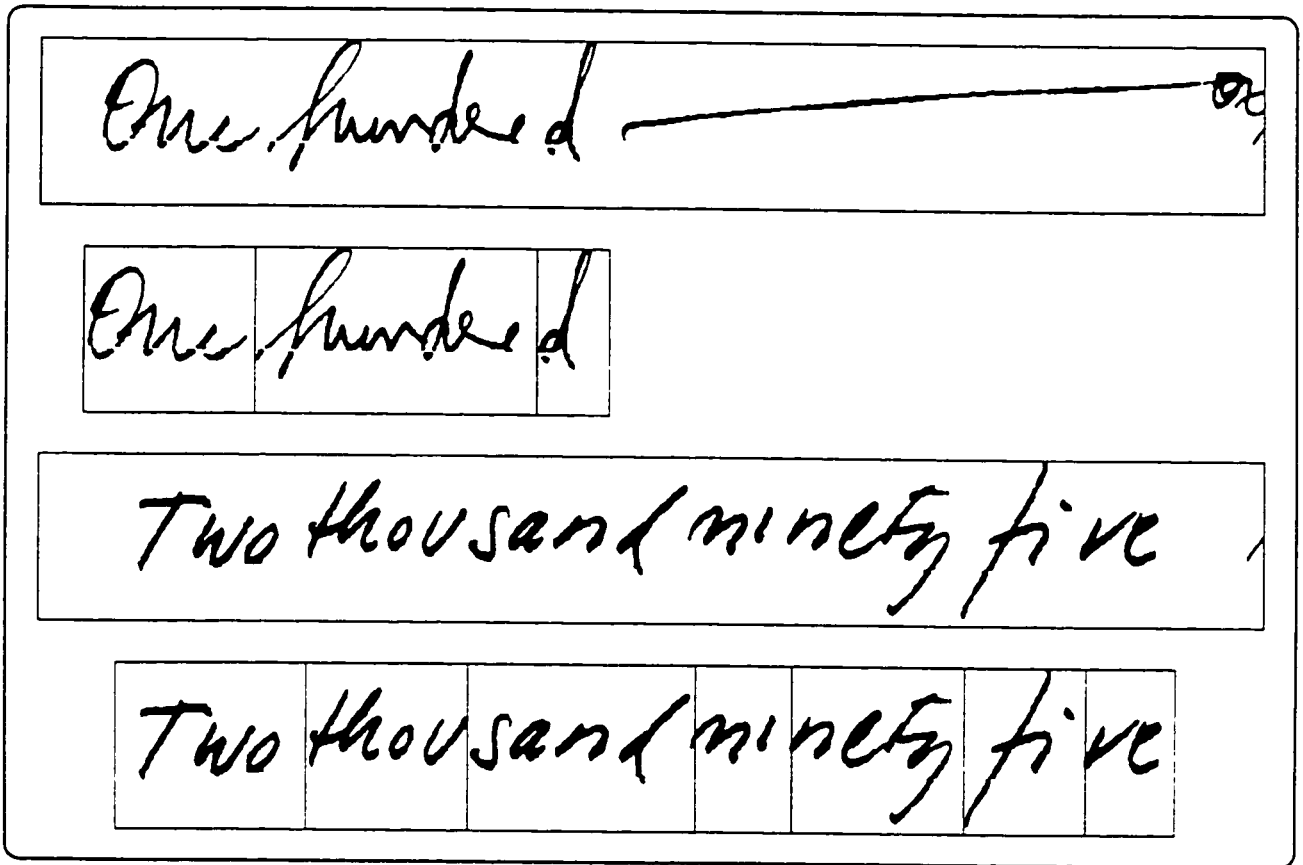 One hundred
One hundred
Two thousand ninety five
Two thousand ninety five